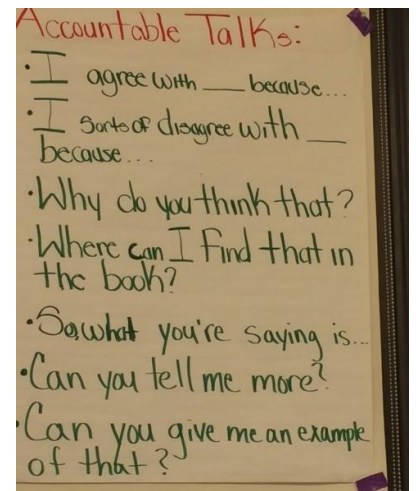 Accountable Talks:
• I agree with ___ because...
• I sorta of disagree with ___
because...
• Why do you think that?
• Where can I find that in
the book?
• So, what you're saying is...
• Can you tell me more?
• Can you give me an example
of that?